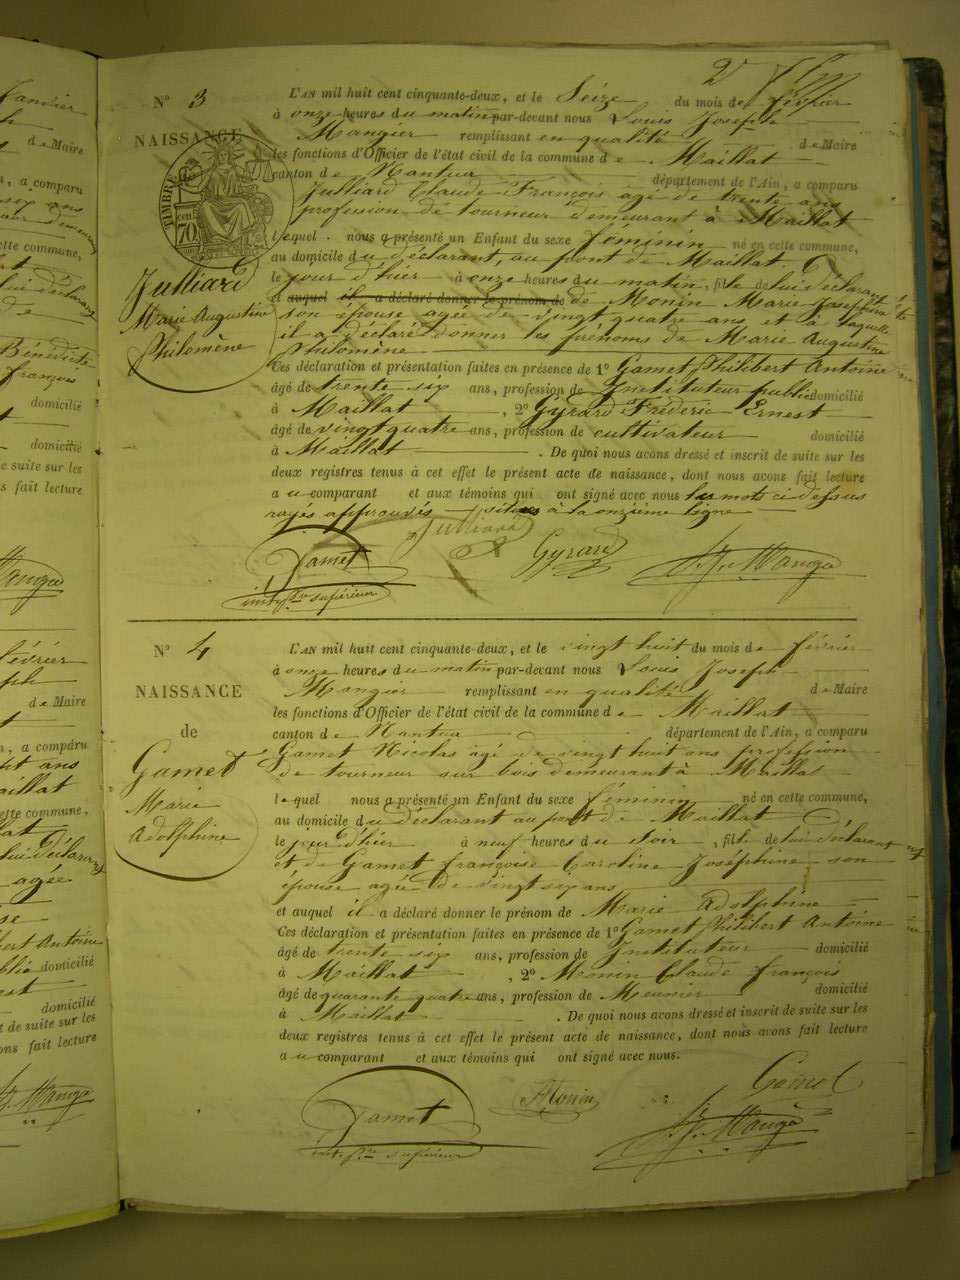 2
N° 3
NAISSANCE
TIMBRE
70
Julliard
Marie Augustine
Philomène
L'AN mil huit cent cinquante-deux, et le Seize du mois de février
à onze heures du matin par-devant nous Louis Joseph
Mangier remplissant en qualité de Maire
les fonctions d'Officier de l'état civil de la commune de Maillat
canton de Nantua département de l'Ain, a comparu
Julliard Claude François agé de trente ans
profession de tourneur demeurant à Maillat
lequel nous a présenté un Enfant du sexe féminin né en cette commune,
au domicile du déclarant, au pont de Maillat
le jour d'hier à onze heures du matin, fille de lui déclarant
et auquel il a déclaré donner le prénom de de Monin Marie Josephine
son épouse agée de vingt quatre ans et à laquelle
il a déclaré donner les prénoms de Marie Augustine
Philomène
Ces déclaration et présentation faites en présence de 1° Gamet Philibert Antoine
âgé de trente six ans, profession de Instituteur public domicilié
à Maillat, 2° Gyrard Fréderic Ernest
âgé de vingt quatre ans, profession de cultivateur domicilié
à Maillat. De quoi nous avons dressé et inscrit de suite sur les
deux registres tenus à cet effet le présent acte de naissance, dont nous avons fait lecture
au comparant et aux témoins qui ont signé avec nous les mots ci dessus
rayés approuvés situés à la onzième ligne
Julliard
Gamet
Gyrard
instr supérieur
N° 4
NAISSANCE
de
Gamet
Marie
Adolphine
L'AN mil huit cent cinquante-deux, et le vingt huit du mois de février
à onze heures du matin par-devant nous Louis Joseph
Mangier remplissant en qualité de Maire
les fonctions d'Officier de l'état civil de la commune de Maillat
canton de Nantua département de l'Ain, a comparu
Gamet Nicolas agé de vingt huit ans profession
de tourneur sur bois demeurant à Maillat
lequel nous a présenté un Enfant du sexe féminin né en cette commune,
au domicile du déclarant au pont de Maillat
le jour d'hier à neuf heures du soir, fille de lui déclarant
et de Gamet françoise Caroline Joséphine son
épouse agée de vingt six ans
et auquel il a déclaré donner le prénom de Marie Adolphine
Ces déclaration et présentation faites en présence de 1° Gamet Philibert Antoine
âgé de trente six ans, profession de Instituteur domicilié
à Maillat, 2° Monin Claude françois
âgé de quarante quatre ans, profession de Meunier domicilié
à Maillat. De quoi nous avons dressé et inscrit de suite sur les
deux registres tenus à cet effet le présent acte de naissance, dont nous avons fait lecture
au comparant et aux témoins qui ont signé avec nous.
Gamet
Monin
Gamet
supérieur